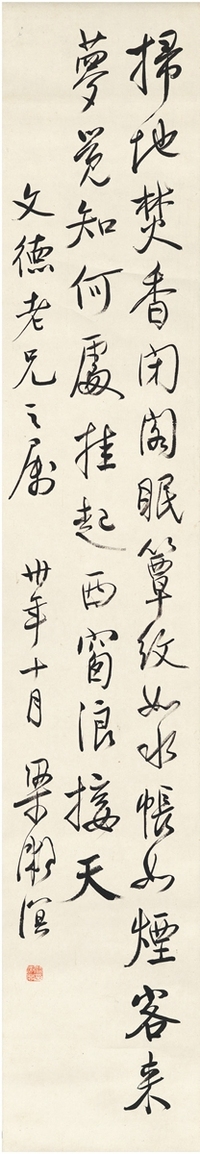 掃地焚香闭阁眠簟纹如水帳如煙客来
夢覺知何處挂起西窗浪接天
文德老兄之屬 卅年十月 梁漱溟